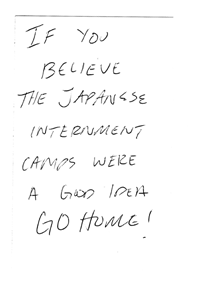 IF YOU
BELIEVE
THE JAPANESE
INTERNMENT
CAMPS WERE
A GOOD IDEA
GO HOME!